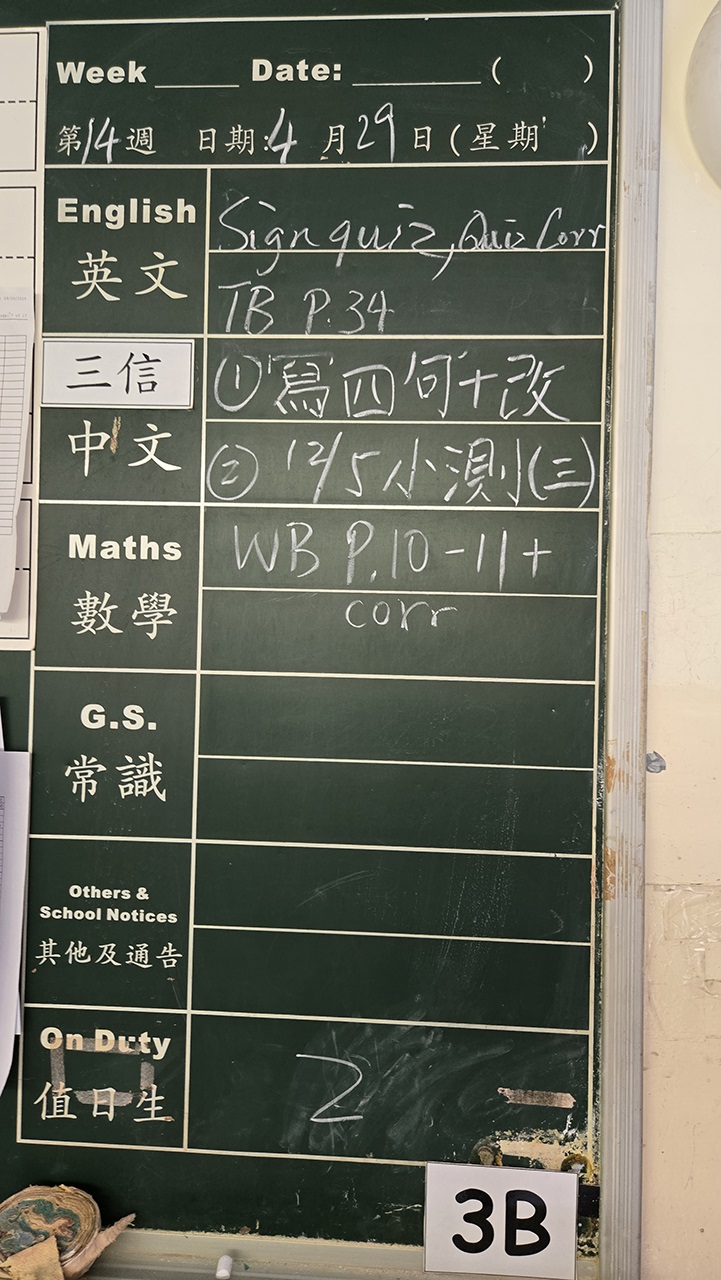 Week ____ Date: ______ ( )
第14週 日期:4月29日(星期 )
English Sign quiz, Quiz Corr
英文 TB P.34
三信 ①寫四句+改
中文 ② 12/5小測(三)
Maths WB P.10-11+
數學 corr
G.S.
常識
Others &
School Notices
其他及通告
On Duty 2
值日生
3B